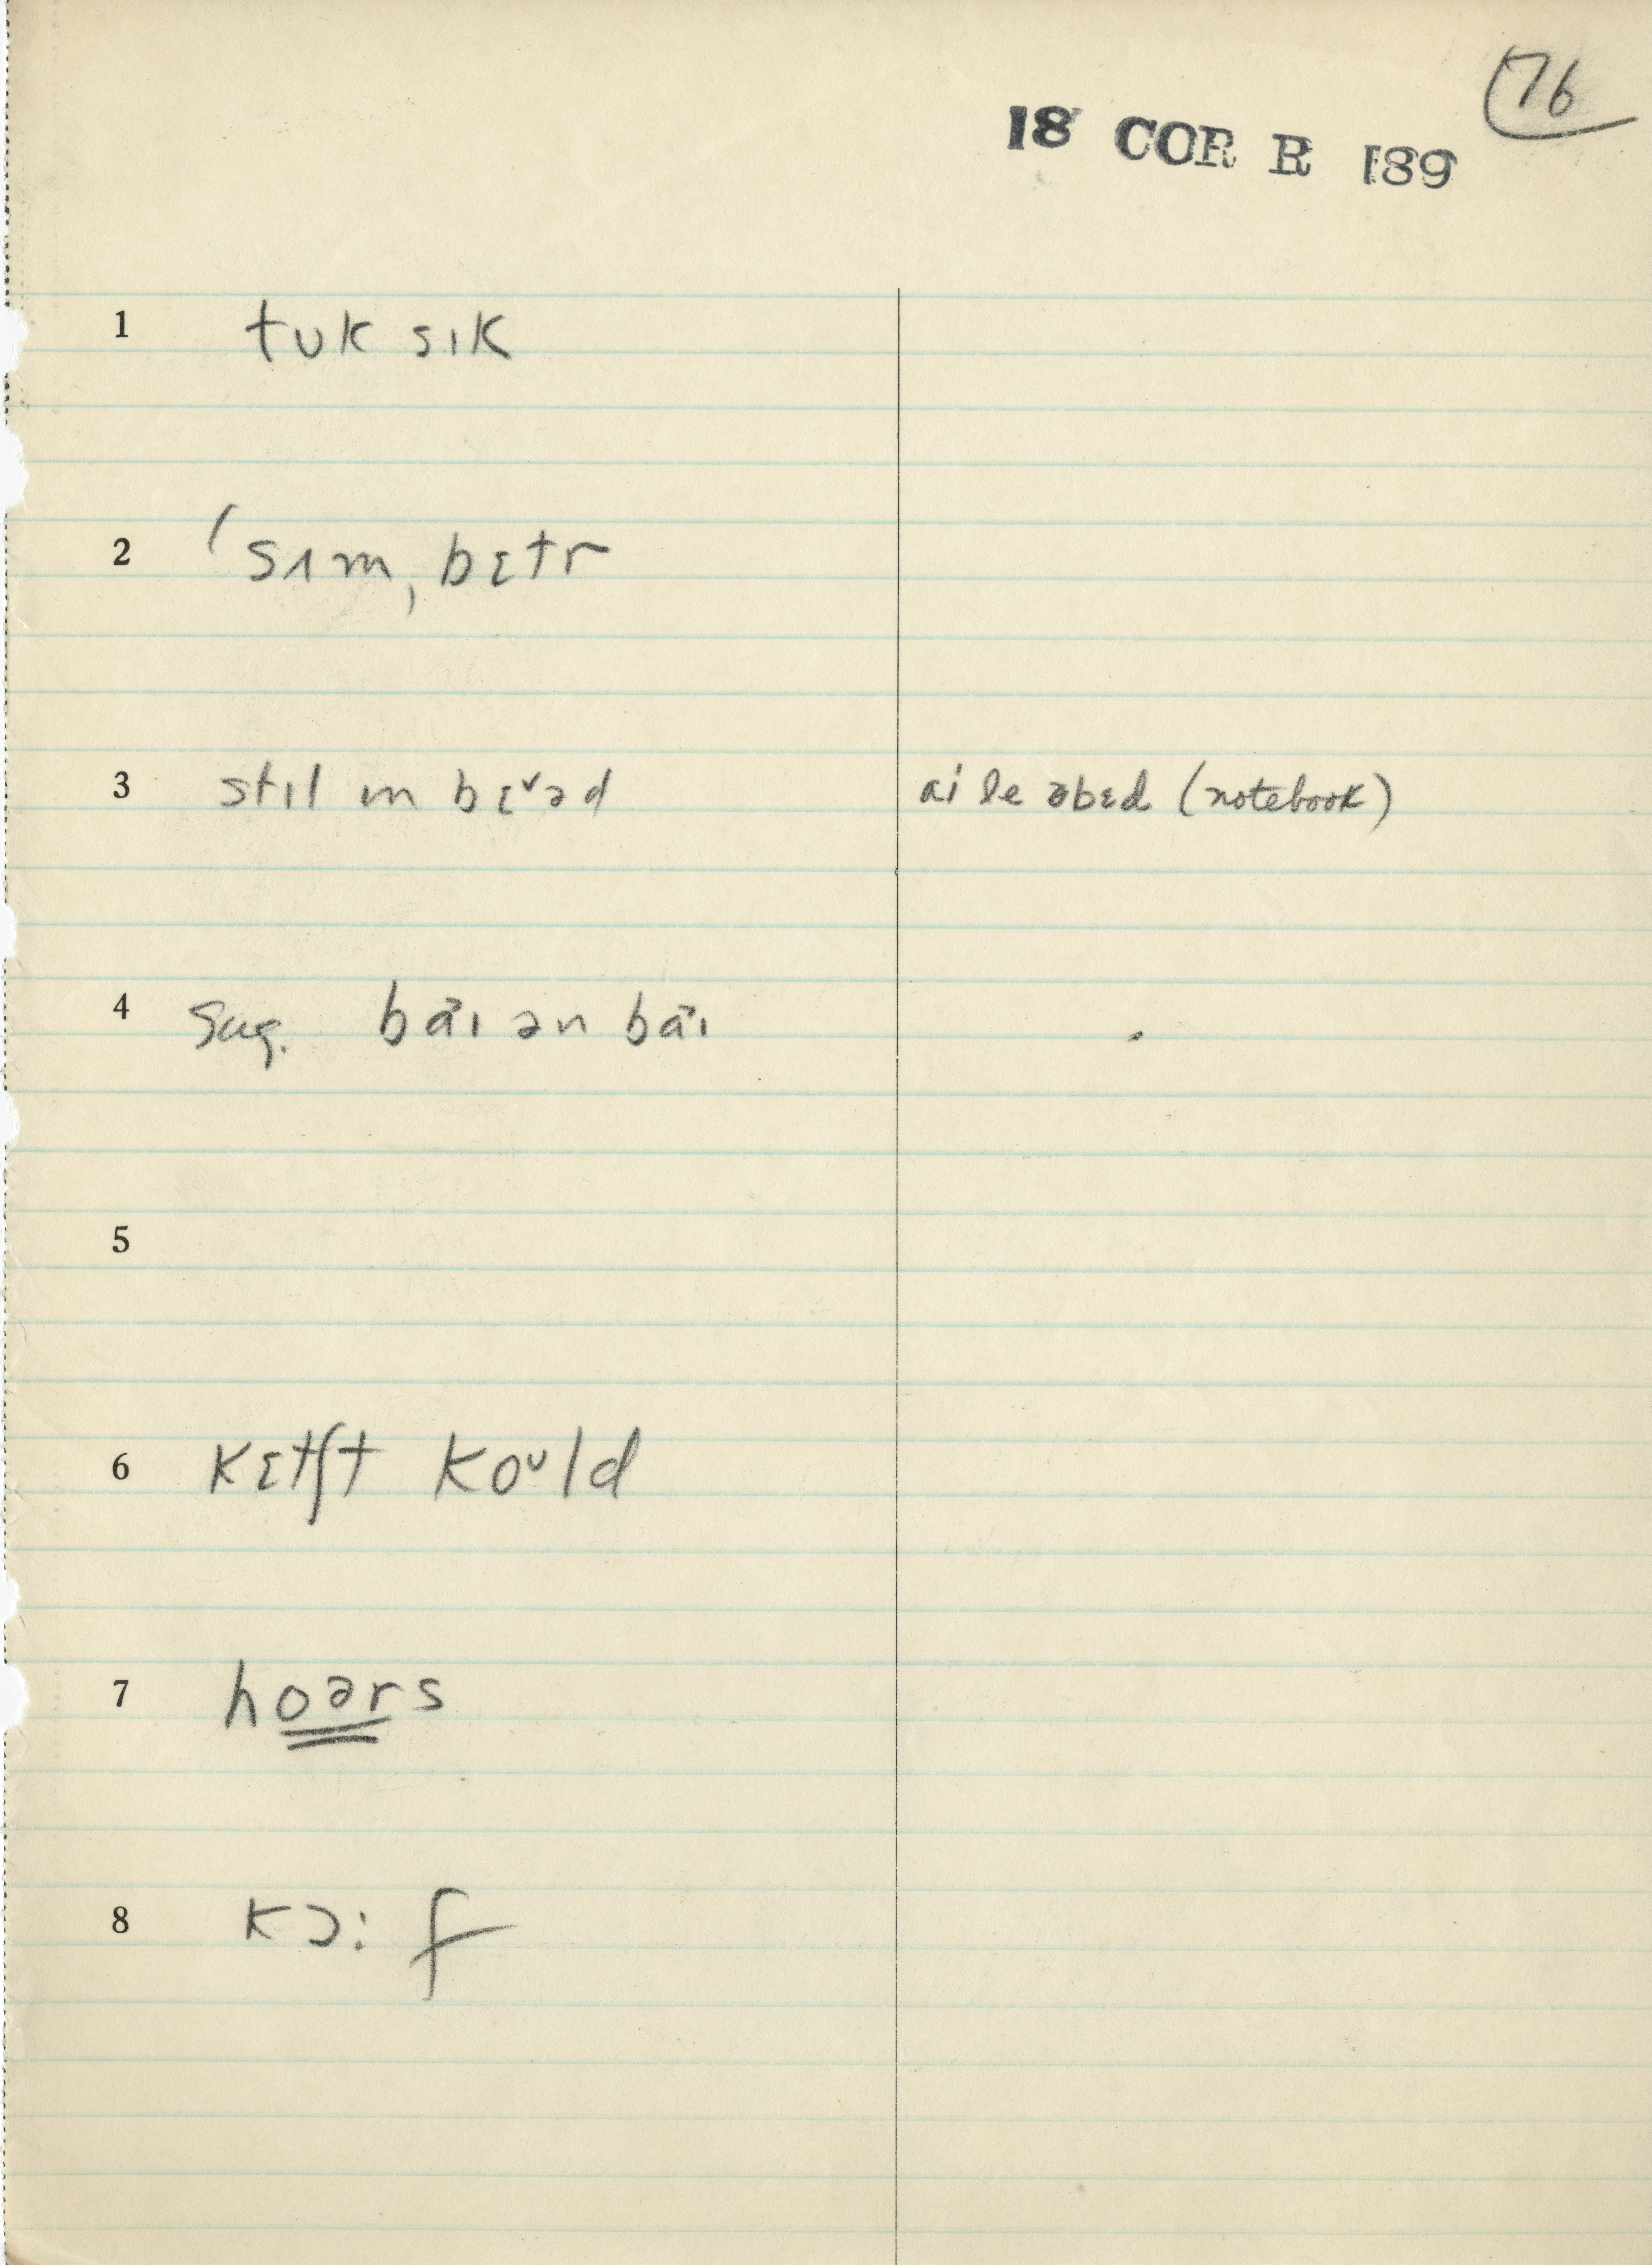 76
18 COR R 189
1 tʊk sɪk
2 ′sʌm, bɛtr
3 stɪl ɪn bɛ˅əd ai le əbɛd (notebook)
4 Sug. ba˃ɪ ən ba˃ɪ
5
6 kɛtʃt koᴜld
7 hoərs
8 kɔ: f